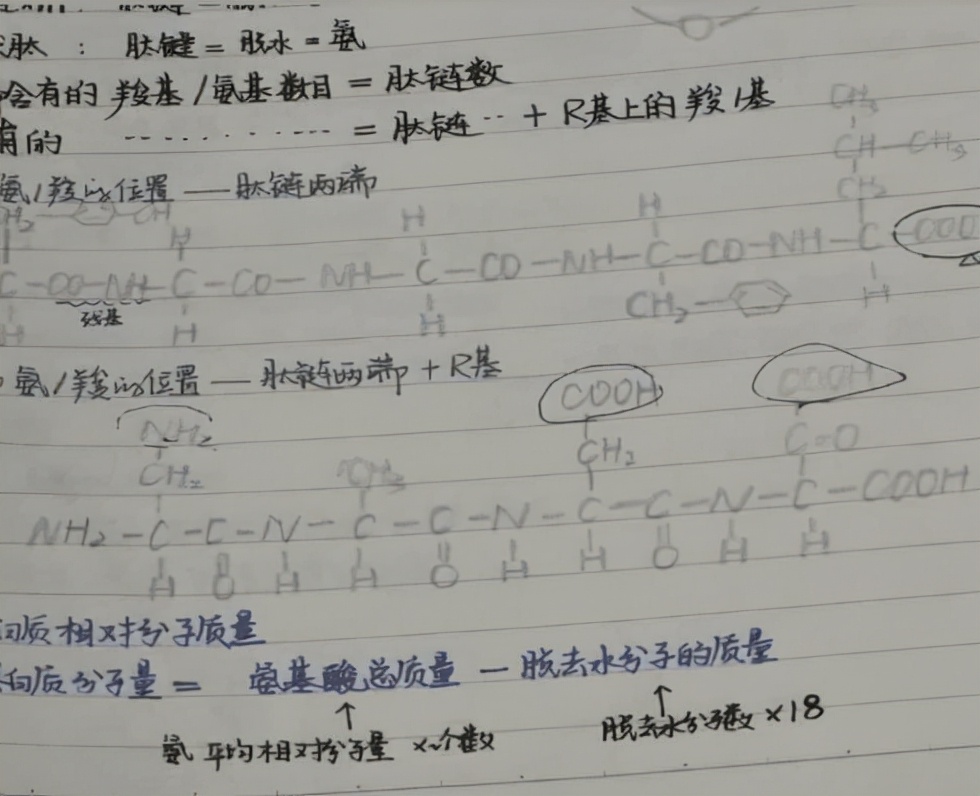 肽 : 肽键 = 脱水 = 氨
含有的 羧基/氨基数目 = 肽链数
有的 ············ = 肽链 ·· + R基上的羧/基
氨/羧的位置 —— 肽链两端
CH3
CH—CH3
CH2
H H H
C—CO—NH—C—CO—NH—C—CO—NH—C—CO—NH—C COO
残基
H H H CH2— H
氨/羧的位置 — 肽链两端 + R基
NH2 COOH COOH
CH2 CH3 CH2 C=O
NH2—C—C—N—C—C—N—C—C—N—C—COOH
H O H H O H H O H H
质相对分子质量
白质分子量 = 氨基酸总质量 — 脱去水分子的质量
↑ ↑
氨 平均相对分子量 ×个数 脱去水分子数 ×18